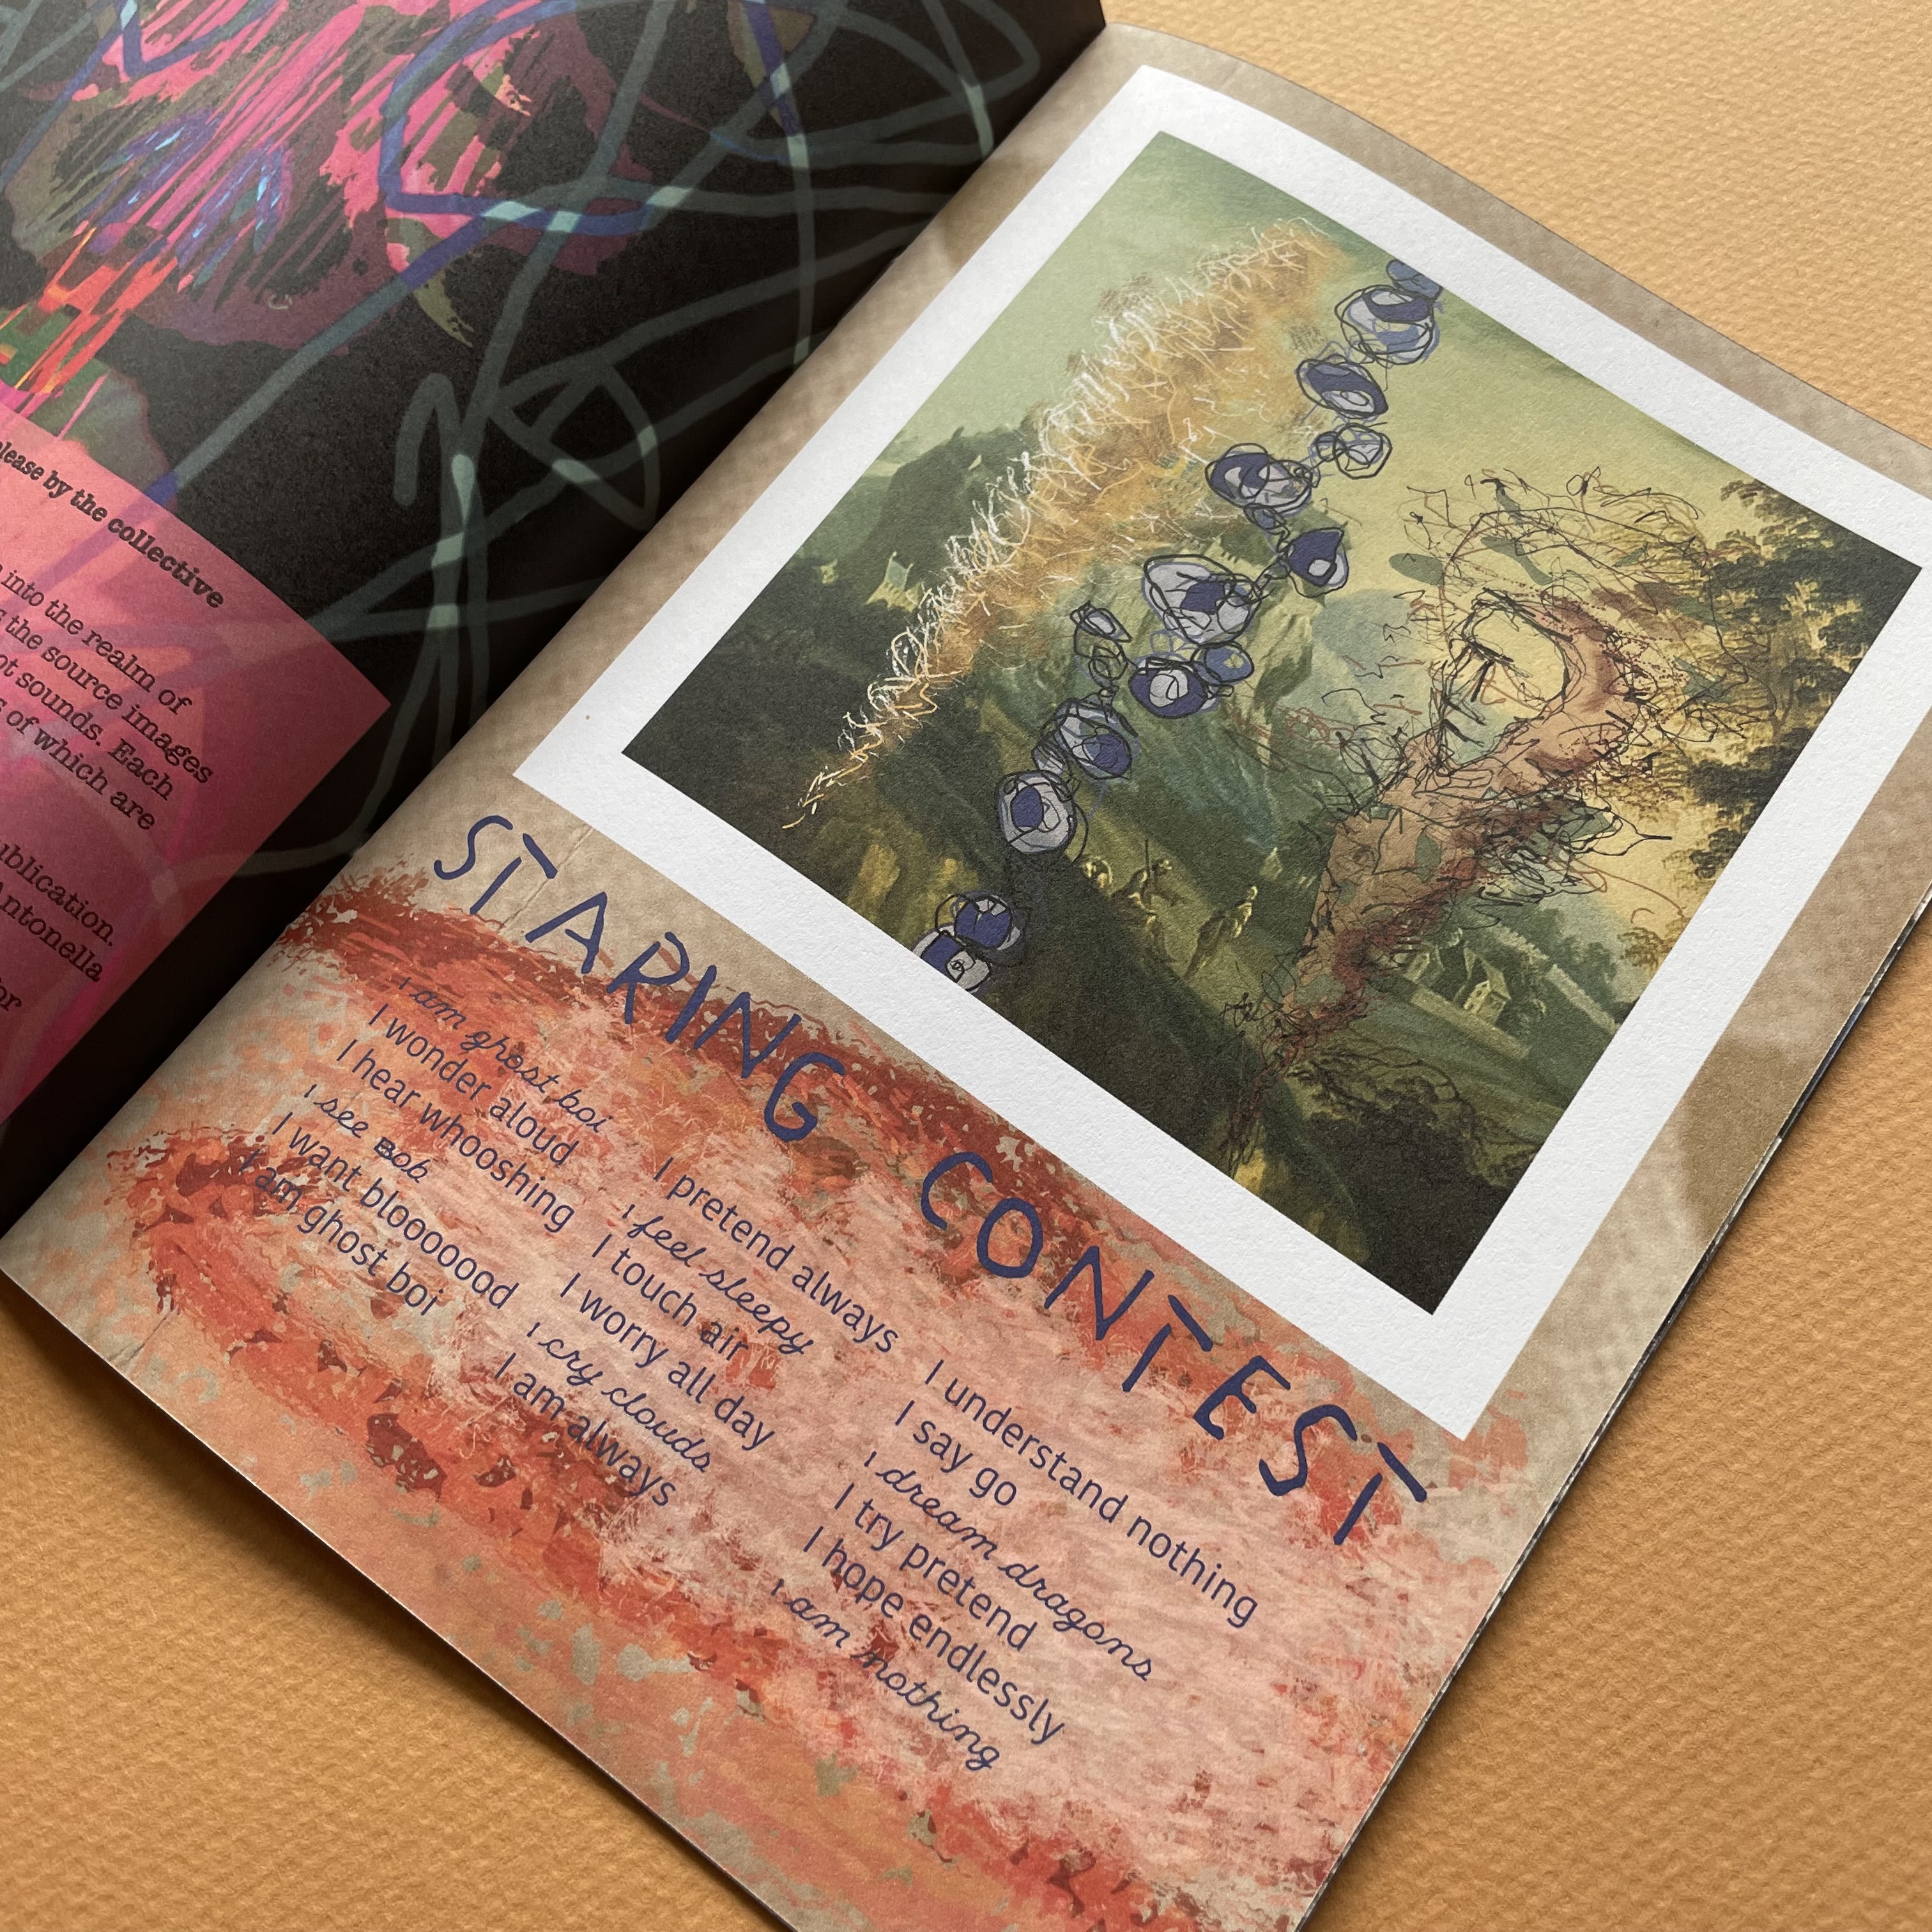 lease by the collective
into the realm of
the source images
ot sounds. Each
of which are
ublication.
Antonella
or
STARING CONTEST
i am ghost boi
I wonder aloud
I hear whooshing
i see Bob
I want blooooood
I am ghost boi
I pretend always
i feel sleepy
I touch air
I worry all day
i cry clouds
I am always
I understand nothing
I say go
i dream dragons
I try pretend
I hope endlessly
i am nothing